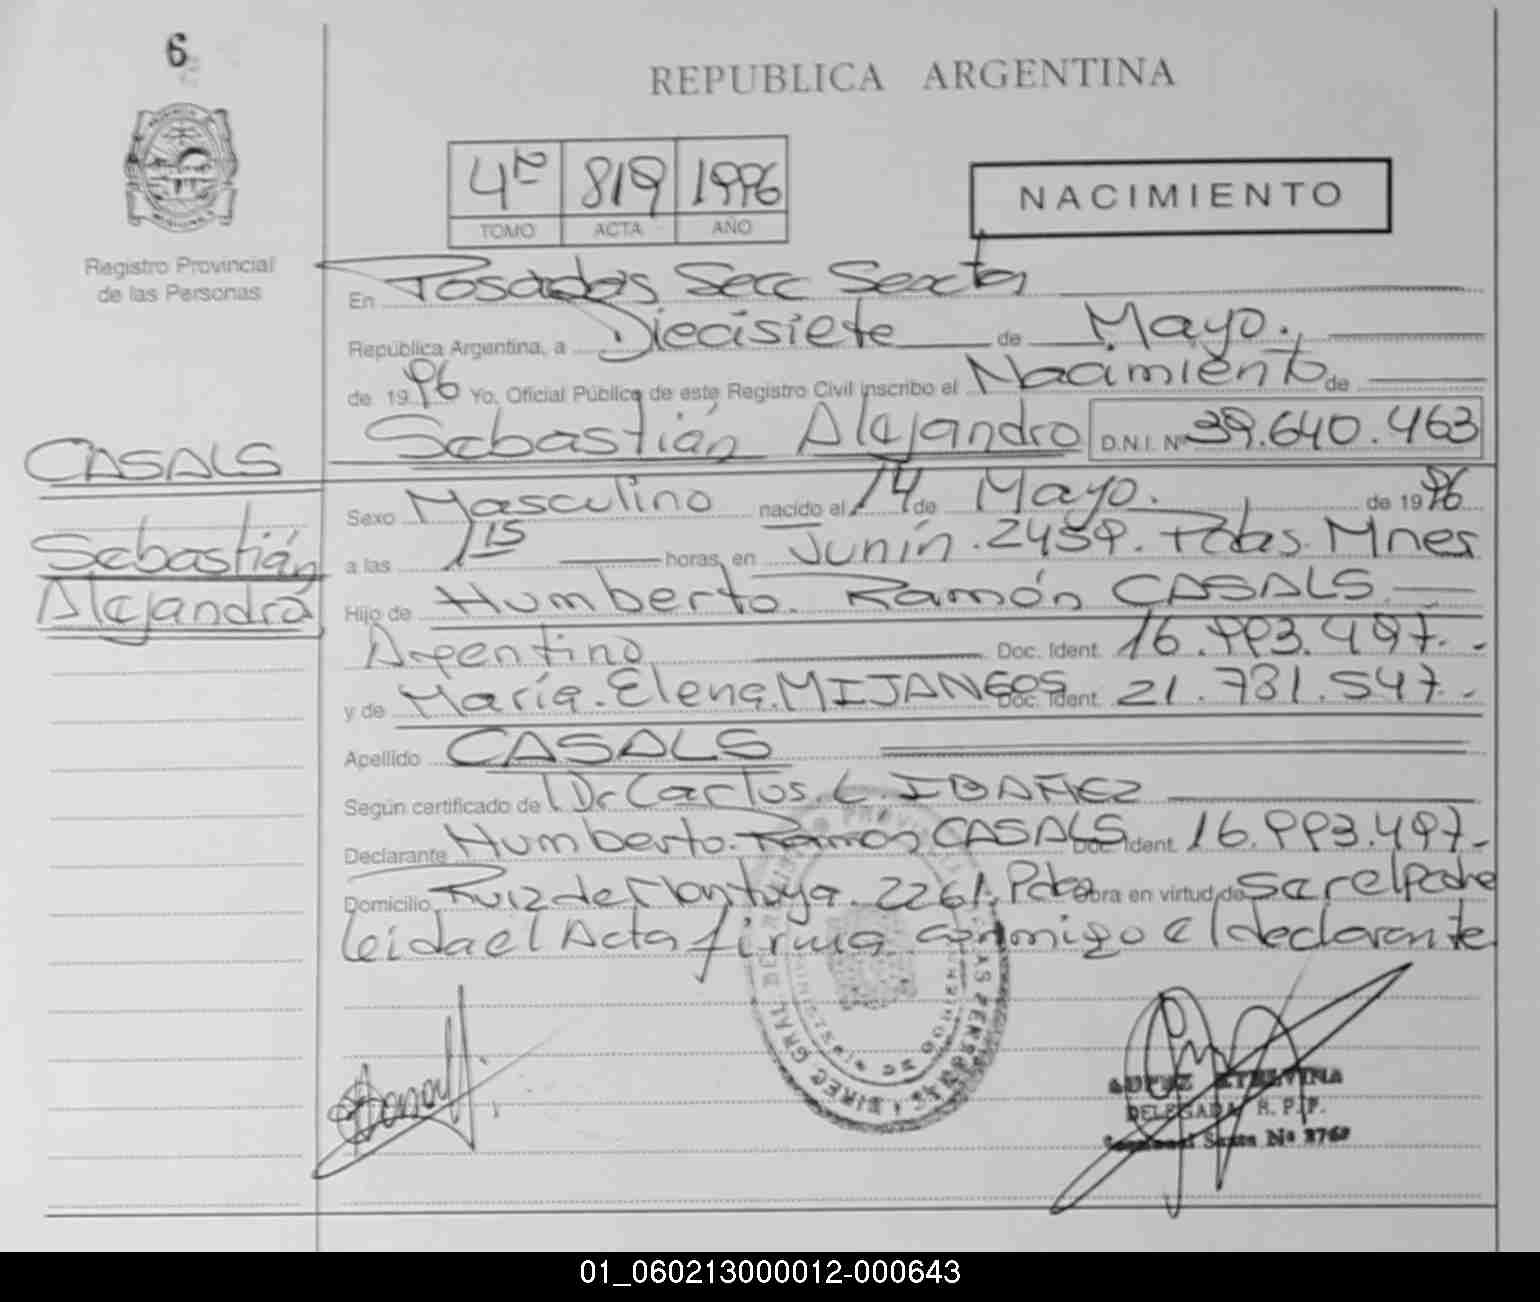 6
REPUBLICA ARGENTINA
4to 819 1996
TOMO ACTA AÑO
NACIMIENTO
Registro Provincial
de las Personas
En Posadas Secc Sexta
República Argentina, a Diecisiete de Mayo.
de 1996 Yo, Oficial Público de este Registro Civil inscribo el Nacimiento de
Sebastián Alejandro D.N.I. Nº 39.640.463
CASALS
Sebastián
Alejandro
Sexo Masculino nacido el 14 de Mayo. de 1996
a las 1 15 horas, en Junín. 2459. Pdas. Mnes
Hijo de Humberto. Ramón CASALS
Argentino Doc. Ident. 16.993.497.-
y de María. Elena. MIJANGOS Doc. Ident. 21.731.547.-
Apellido CASALS
Según certificado de Dr Carlos. L IBAÑEZ
Declarante Humberto. Ramón CASALS Doc. Ident. 16.993.497.-
Domicilio Ruiz de Montoya. 2261. Pdas Obra en virtud de ser el padre
leida el Acta firma conmigo el declarante
LOPEZ ETELVINA
DELEGADA R. P. P.
Seccional Sexta Nº
01_060213000012-000643